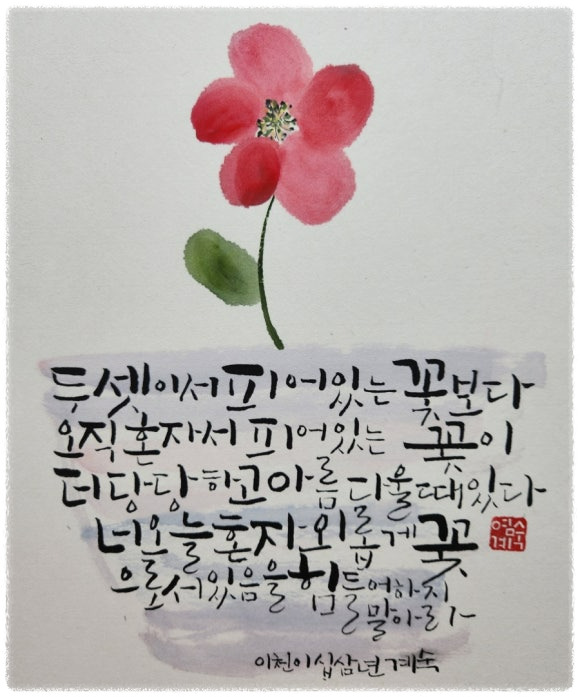 두셋이서 피어있는 꽃보다
오직 혼자서 피어있는 꽃이
더 당당하고 아름다울 때 있다
너 오늘 혼자 외롭게 꽃
으로 서있음을 힘들어하지
말아라
이천이십삼년 계숙